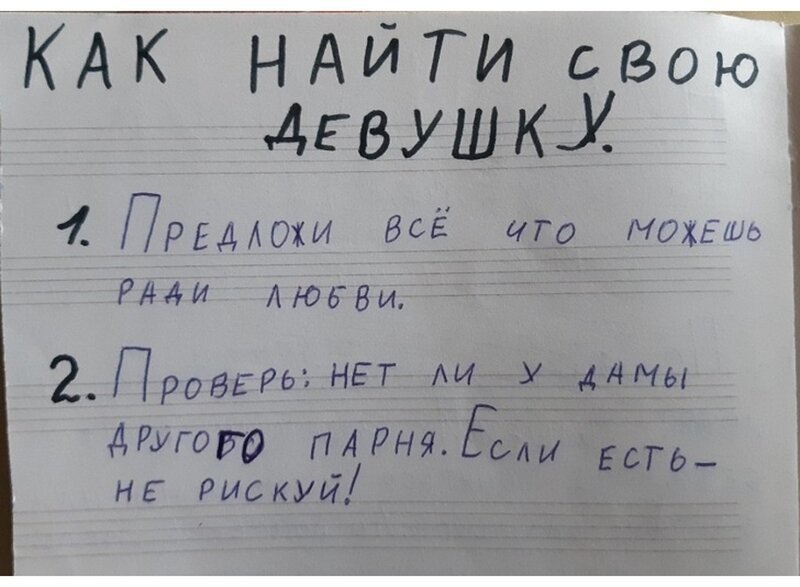 КАК НАЙТИ СВОЮ
ДЕВУШКУ.
1. ПРЕДЛОЖИ ВСЁ ЧТО МОЖЕШЬ
РАДИ ЛЮБВИ.
2. ПРОВЕРЬ: НЕТ ЛИ У ДАМЫ
ДРУГОГО ПАРНЯ. ЕСЛИ ЕСТЬ–
НЕ РИСКУЙ!